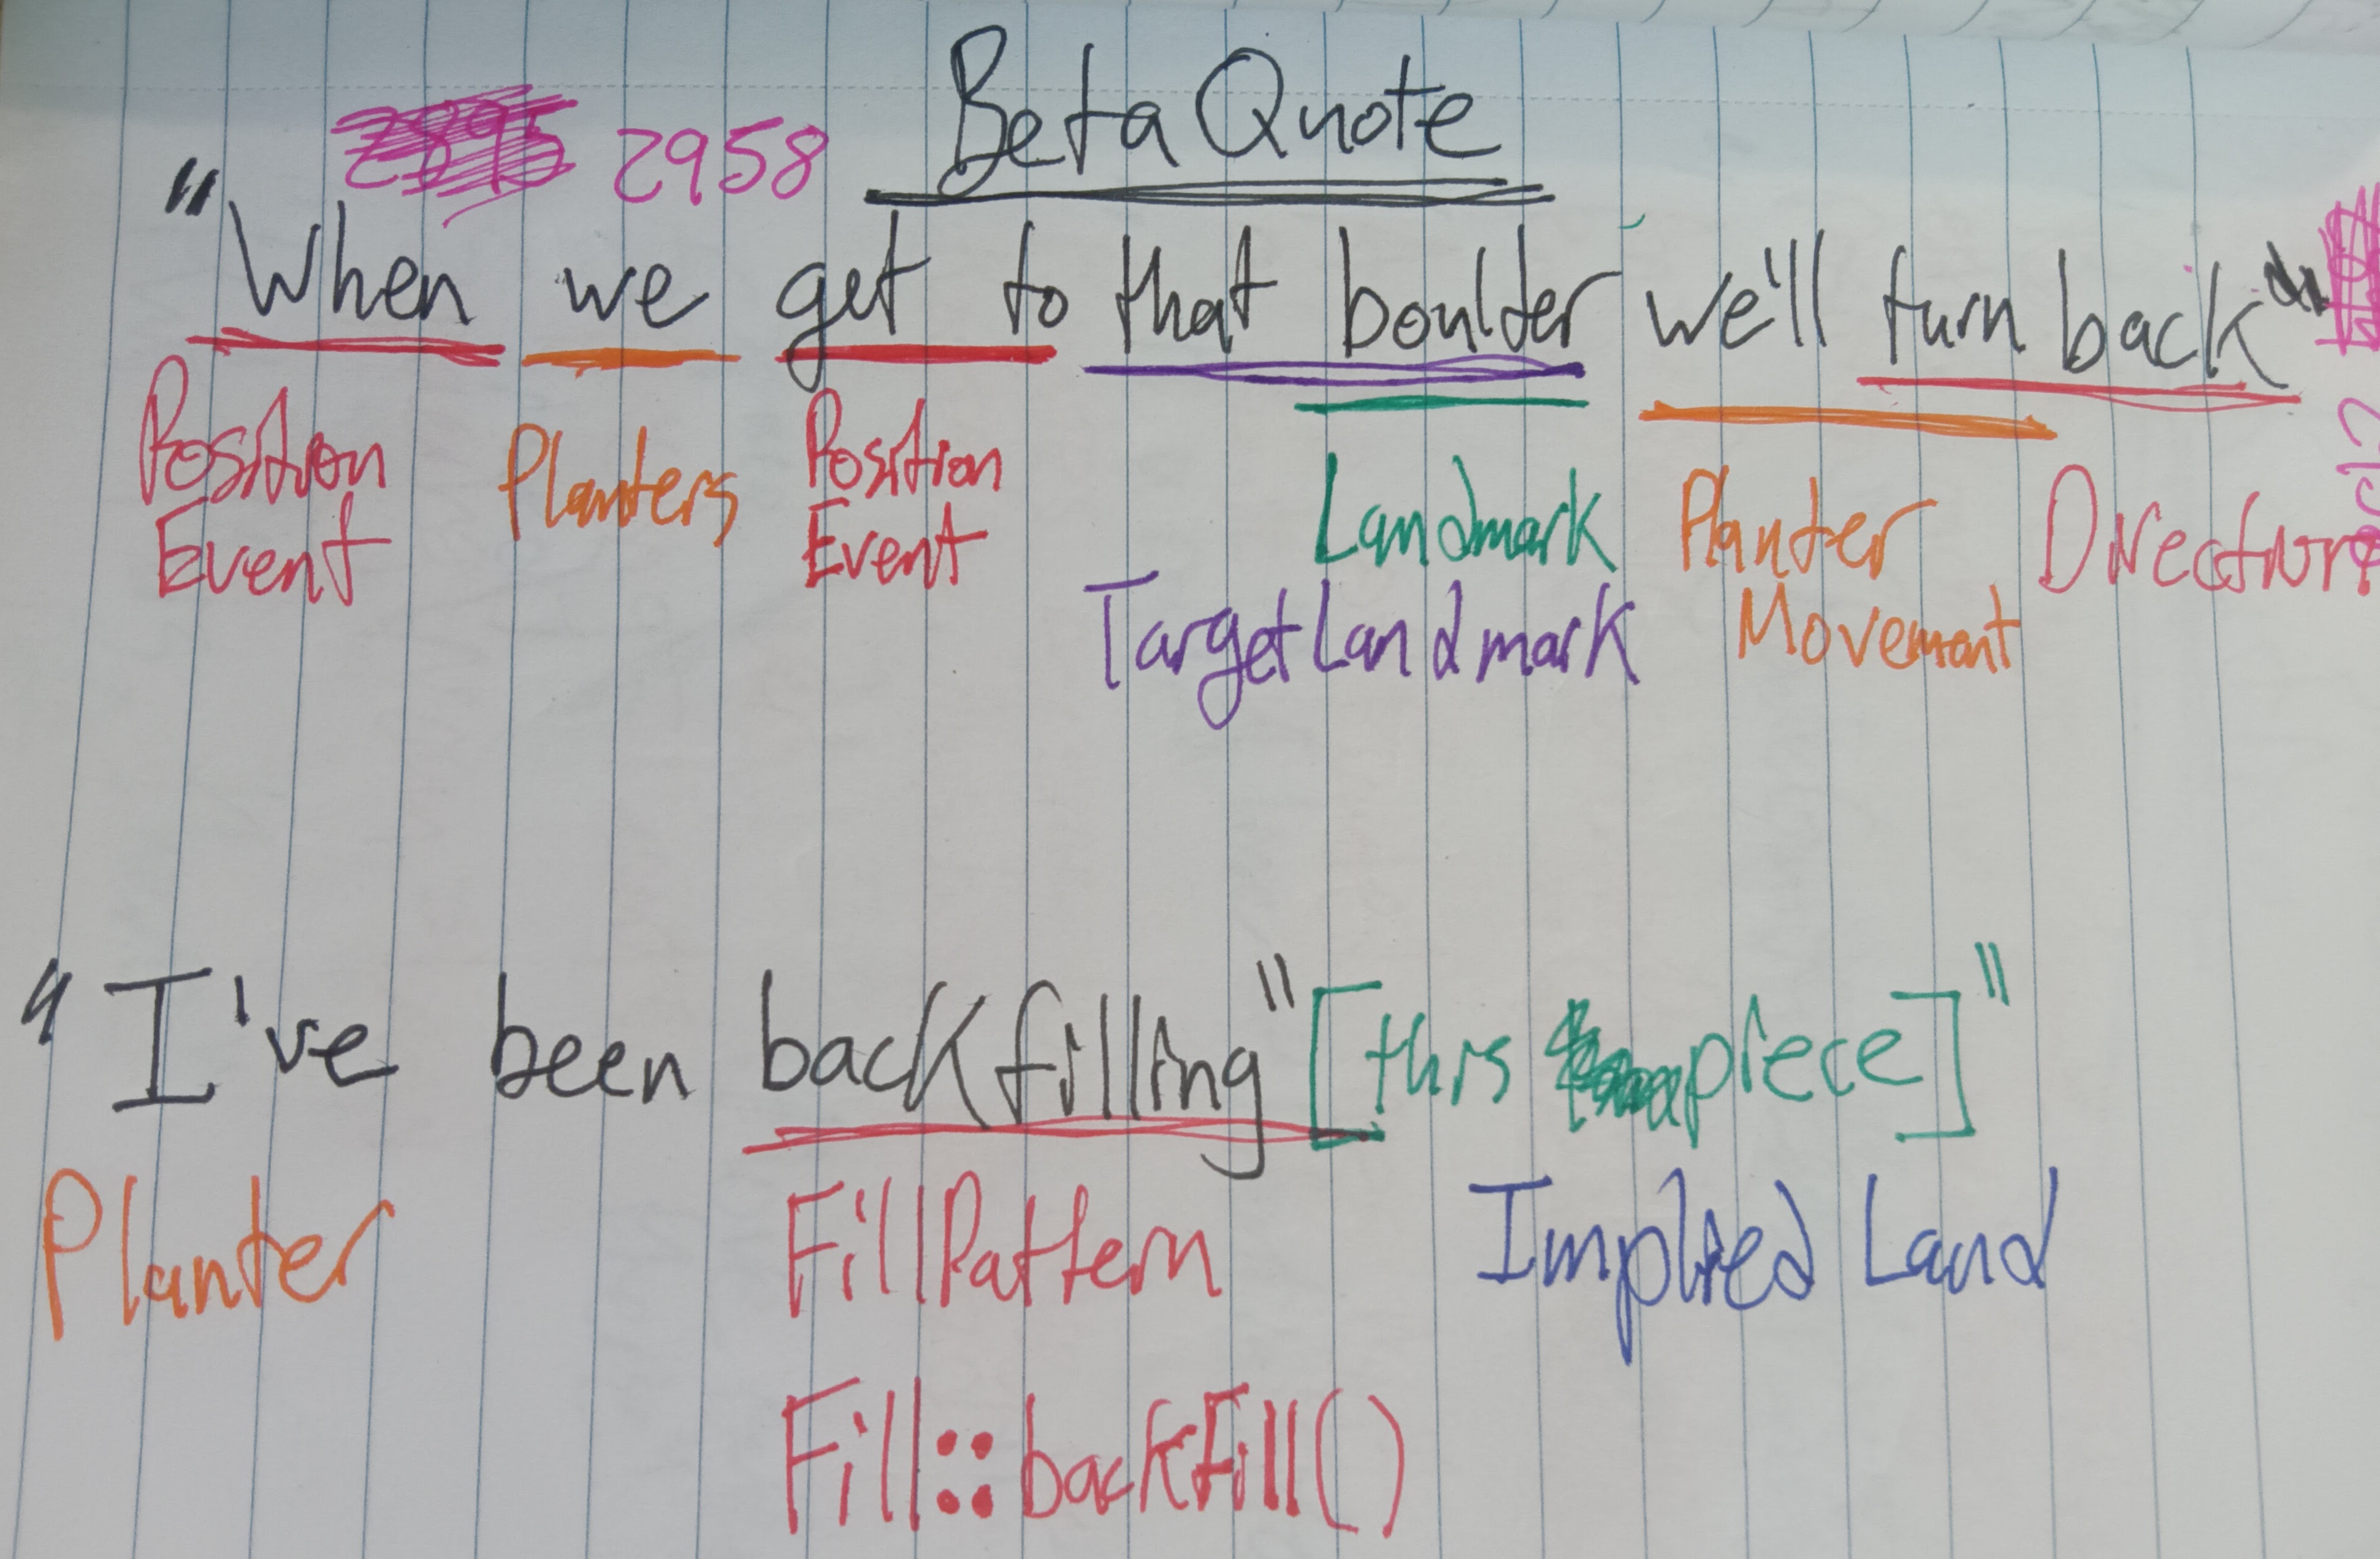 Beta Quote
2895 2958
"When we get to that boulder we'll turn back"
Position Planters Position Landmark Planter Direction
Event Event Target Landmark Movement
"I've been backfilling" [this piece]"
Planter FillPattern Implied Land
Fill::backFill()